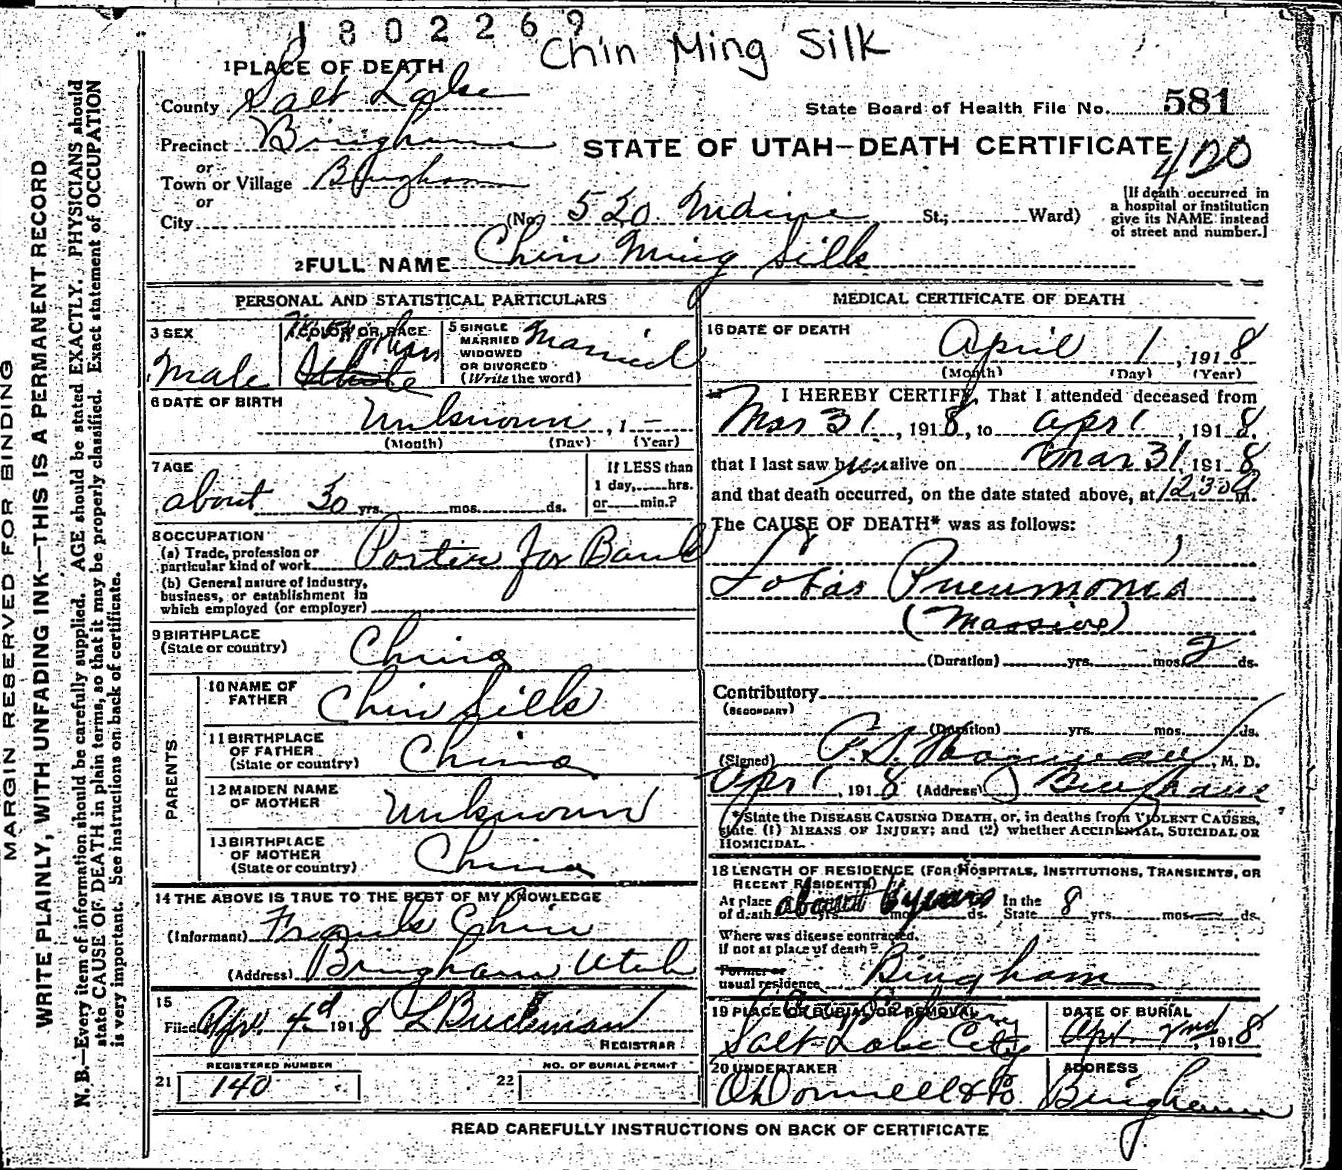 1802269
Chin Ming Silk
1 PLACE OF DEATH
County Salt Lake
State Board of Health File No. 581
Precinct Bingham
STATE OF UTAH—DEATH CERTIFICATE
420
or
Town or Village Bingham
or
City (No. 520 St.; Ward)
[If death occurred in
a hospital or institution
give its NAME instead
of street and number.]
2 FULL NAME Chin Ming Silk
PERSONAL AND STATISTICAL PARTICULARS
3 SEX
Male
4 COLOR OR RACE
White
5 SINGLE
MARRIED
WIDOWED
OR DIVORCED
(Write the word)
Married
6 DATE OF BIRTH
Unknown, 1 —
(Month) (Day) (Year)
7 AGE
about 30 yrs. mos. ds.
If LESS than
1 day, hrs.
or min.?
8 OCCUPATION
(a) Trade, profession or
particular kind of work Porter for Bank
(b) General nature of industry,
business, or establishment in
which employed (or employer)
9 BIRTHPLACE
(State or country) China
PARENTS
10 NAME OF
FATHER Chin Silk
11 BIRTHPLACE
OF FATHER
(State or country) China
12 MAIDEN NAME
OF MOTHER Unknown
13 BIRTHPLACE
OF MOTHER
(State or country) China
14 THE ABOVE IS TRUE TO THE BEST OF MY KNOWLEDGE
(Informant) Frank Chin
(Address) Bingham Utah
15
Filed Apr. 4d 1918 L Buckman
REGISTRAR
REGISTERED NUMBER
21 140
NO. OF BURIAL PERMIT
22
MEDICAL CERTIFICATE OF DEATH
16 DATE OF DEATH
April 1, 1918
(Month) (Day) (Year)
I HEREBY CERTIFY, That I attended deceased from
Mar 31, 1918, to Apr 1, 1918
that I last saw him alive on Mar 31, 1918
and that death occurred, on the date stated above, at 12:30 m.
The CAUSE OF DEATH* was as follows:
Lobar Pneumonia
(Massive)
(Duration) yrs. mos. 2 ds.
Contributory
(SECONDARY)
(Duration) yrs. mos. ds.
(Signed) M. D.
Apr 1, 1918 (Address) Bingham
*State the DISEASE CAUSING DEATH, or, in deaths from VIOLENT CAUSES,
state (1) MEANS OF INJURY; and (2) whether ACCIDENTAL, SUICIDAL OR
HOMICIDAL.
18 LENGTH OF RESIDENCE (FOR HOSPITALS, INSTITUTIONS, TRANSIENTS, OR
RECENT RESIDENTS)
At place
of death about 6 years yrs. mos. ds. In the
State 8 yrs. mos. — ds.
Where was disease contracted,
if not at place of death?
Former or
usual residence Bingham
19 PLACE OF BURIAL OR REMOVAL
Salt Lake City
DATE OF BURIAL
Apr. 2nd 1918
20 UNDERTAKER
O'Donnell & Co
ADDRESS
Bingham
READ CAREFULLY INSTRUCTIONS ON BACK OF CERTIFICATE
MARGIN RESERVED FOR BINDING
WRITE PLAINLY, WITH UNFADING INK—THIS IS A PERMANENT RECORD
N. B.—Every item of information should be carefully supplied. AGE should be stated EXACTLY. PHYSICIANS should
state CAUSE OF DEATH in plain terms, so that it may be properly classified. Exact statement of OCCUPATION
is very important. See instructions on back of certificate.